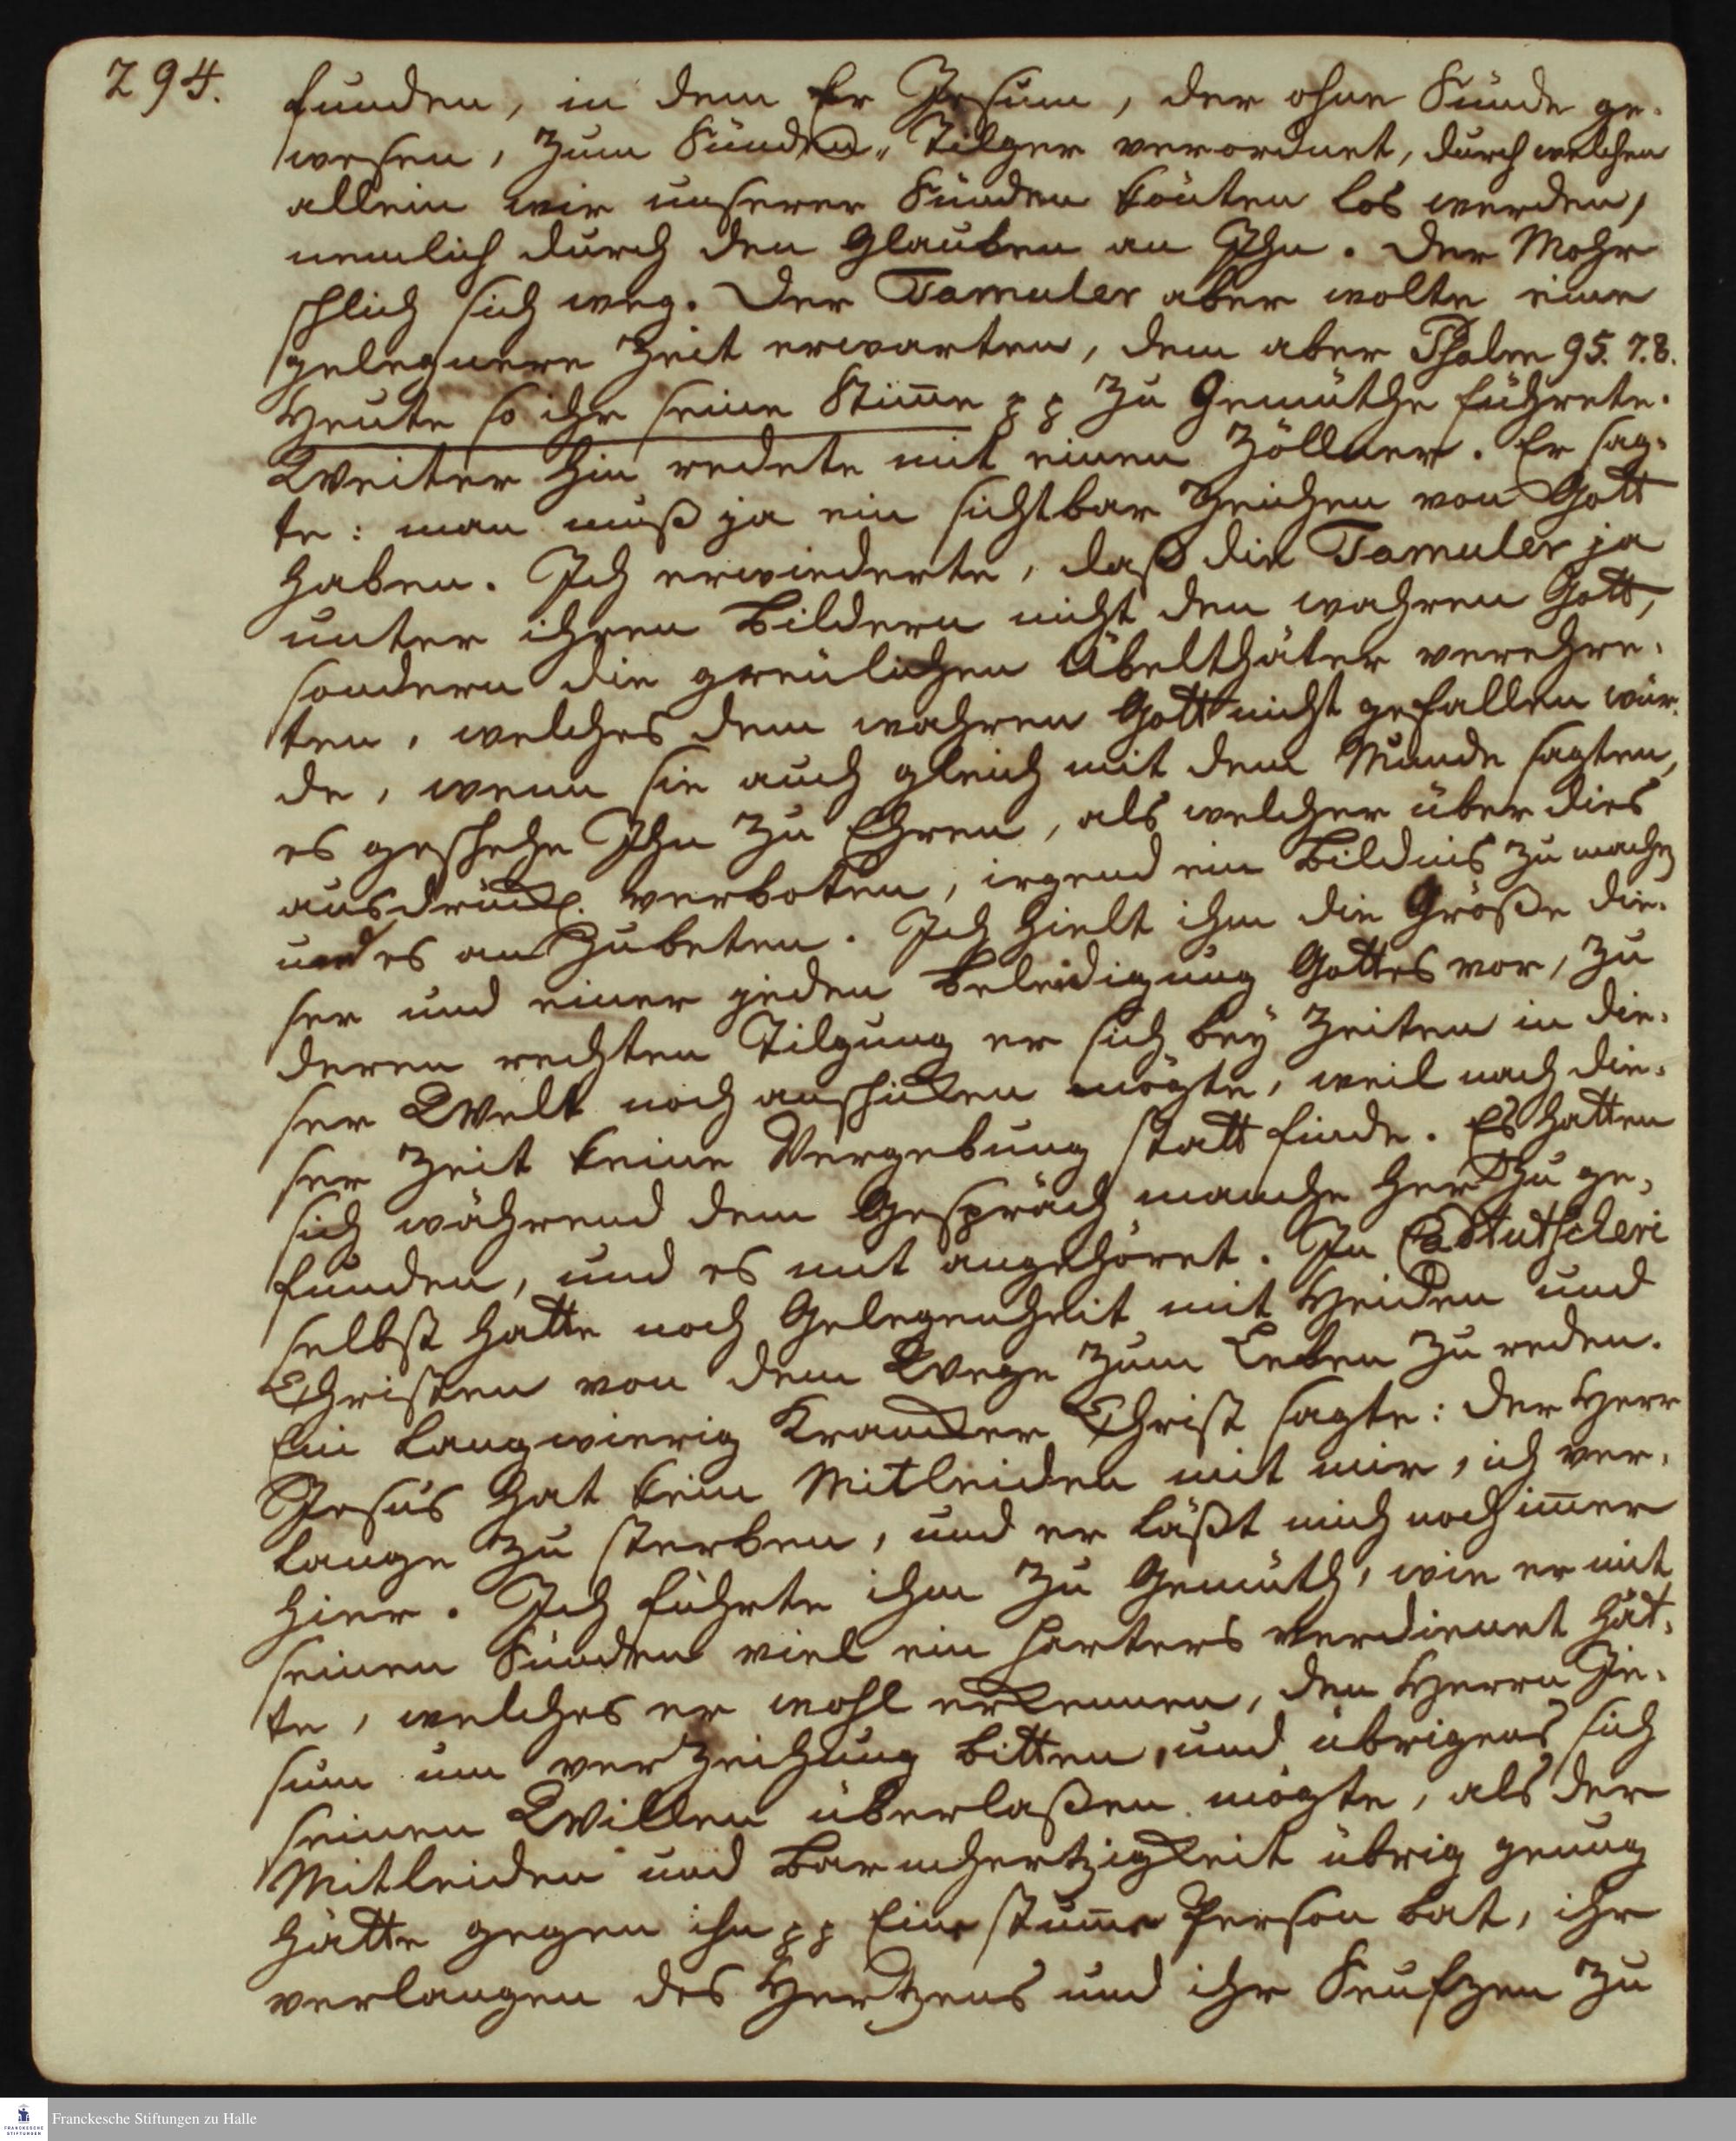 294.
funden, in dem Er Jesum, der ohne Sünde ge-
wesen, zum Sünden-Tilger verordnet, durch welchen
allein wir unserer Sünden könten los werden,
nemlich durch den Glauben an Ihn. Der Mohr
schlich sich weg. Der Tamuler aber wolte eine
gelegnere Zeit erwarten, dem aber Psalm 95. 7.8.
Heute so ihr seine Stim̄e pp zu Gemüthe führete.
Weiter hin redete mit einen Zöllner. Er sag-
te: man muß ja ein sichtbar Zeichen von Gott
haben. Ich erwiederte, daß die Tamuler ja
unter ihren Bildern nicht den wahren Gott,
sondern die greulichen Übelthäter verehre-
ten, welches dem wahren Gott nicht gefallen wür-
de, wenn sie auch gleich mit dem Munde sagten,
es geschehe Ihn zu Ehren, als welcher über dies
ausdrückl. verboten, irgend ein Bildnis zu machen
und es anzubeten. Ich hielt ihm die Größe die-
ser und einer jeden Beleidigung Gottes vor, zu
deren rechten Tilgung er sich bey Zeiten in die-
ser Welt noch anschicken mögte, weil nach die-
ser Zeit keine Vergebung statt finde. Es hatten
sich während dem Gespräch manche herzu ge-
funden, und es mit angehöret. In Castutscheri
selbst hatte noch Gelegenheit mit Heiden und
Christen von dem Wege zum Leben zu reden.
Ein langwierig Krancker Christ sagte: der Herr
Jesus hat kein Mitleiden mit mir, ich ver-
lange zu sterben, und er läßt mich noch im̄er
hier. Ich führte ihm zu Gemüth, wie er mit
seinen Sünden viel ein harters verdienet hät-
te, welches er wohl erkennen, den Herrn Je-
sum um verzeihung bitten, und übrigens sich
seinen Willen überlaßen mögte, als der
Mitleiden und Barmhertzigkeit übrig genug
hätte gegen ihn pp Eine stum̄e Person bat, ihr
verlangen des Hertzens und ihr Seufzen zu
Franckesche Stiftungen zu Halle